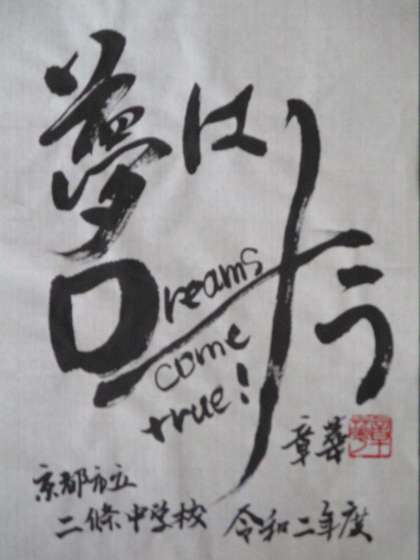 夢は
叶う
Dreams
come
true!
章華
京都市立
二條中学校 令和二年度